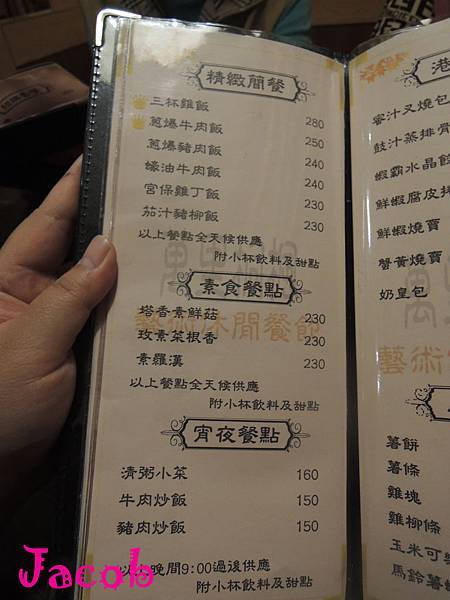 精緻簡餐
三杯雞飯 280
蔥爆牛肉飯 250
蔥爆豬肉飯 240
蠔油牛肉飯 240
宮保雞丁飯 230
茄汁豬柳飯 230
以上餐點全天候供應
附小杯飲料及甜點
素食餐點
塔香素鮮菇 230
玫素菜根香 230
素羅漢 230
以上餐點全天候供應
附小杯飲料及甜點
藝術休閒餐飲
宵夜餐點
清粥小菜 160
牛肉炒飯 150
豬肉炒飯 150
以上晚間9:00過後供應
附小杯飲料及甜點
港
蜜汁叉燒包
豉汁蒸排骨
蝦霸水晶餃
鮮蝦腐皮捲
鮮蝦燒賣
蟹黃燒賣
奶皇包
藝術
薯餅
薯條
雞塊
雞柳條
玉米可樂
馬鈴薯
Jacob